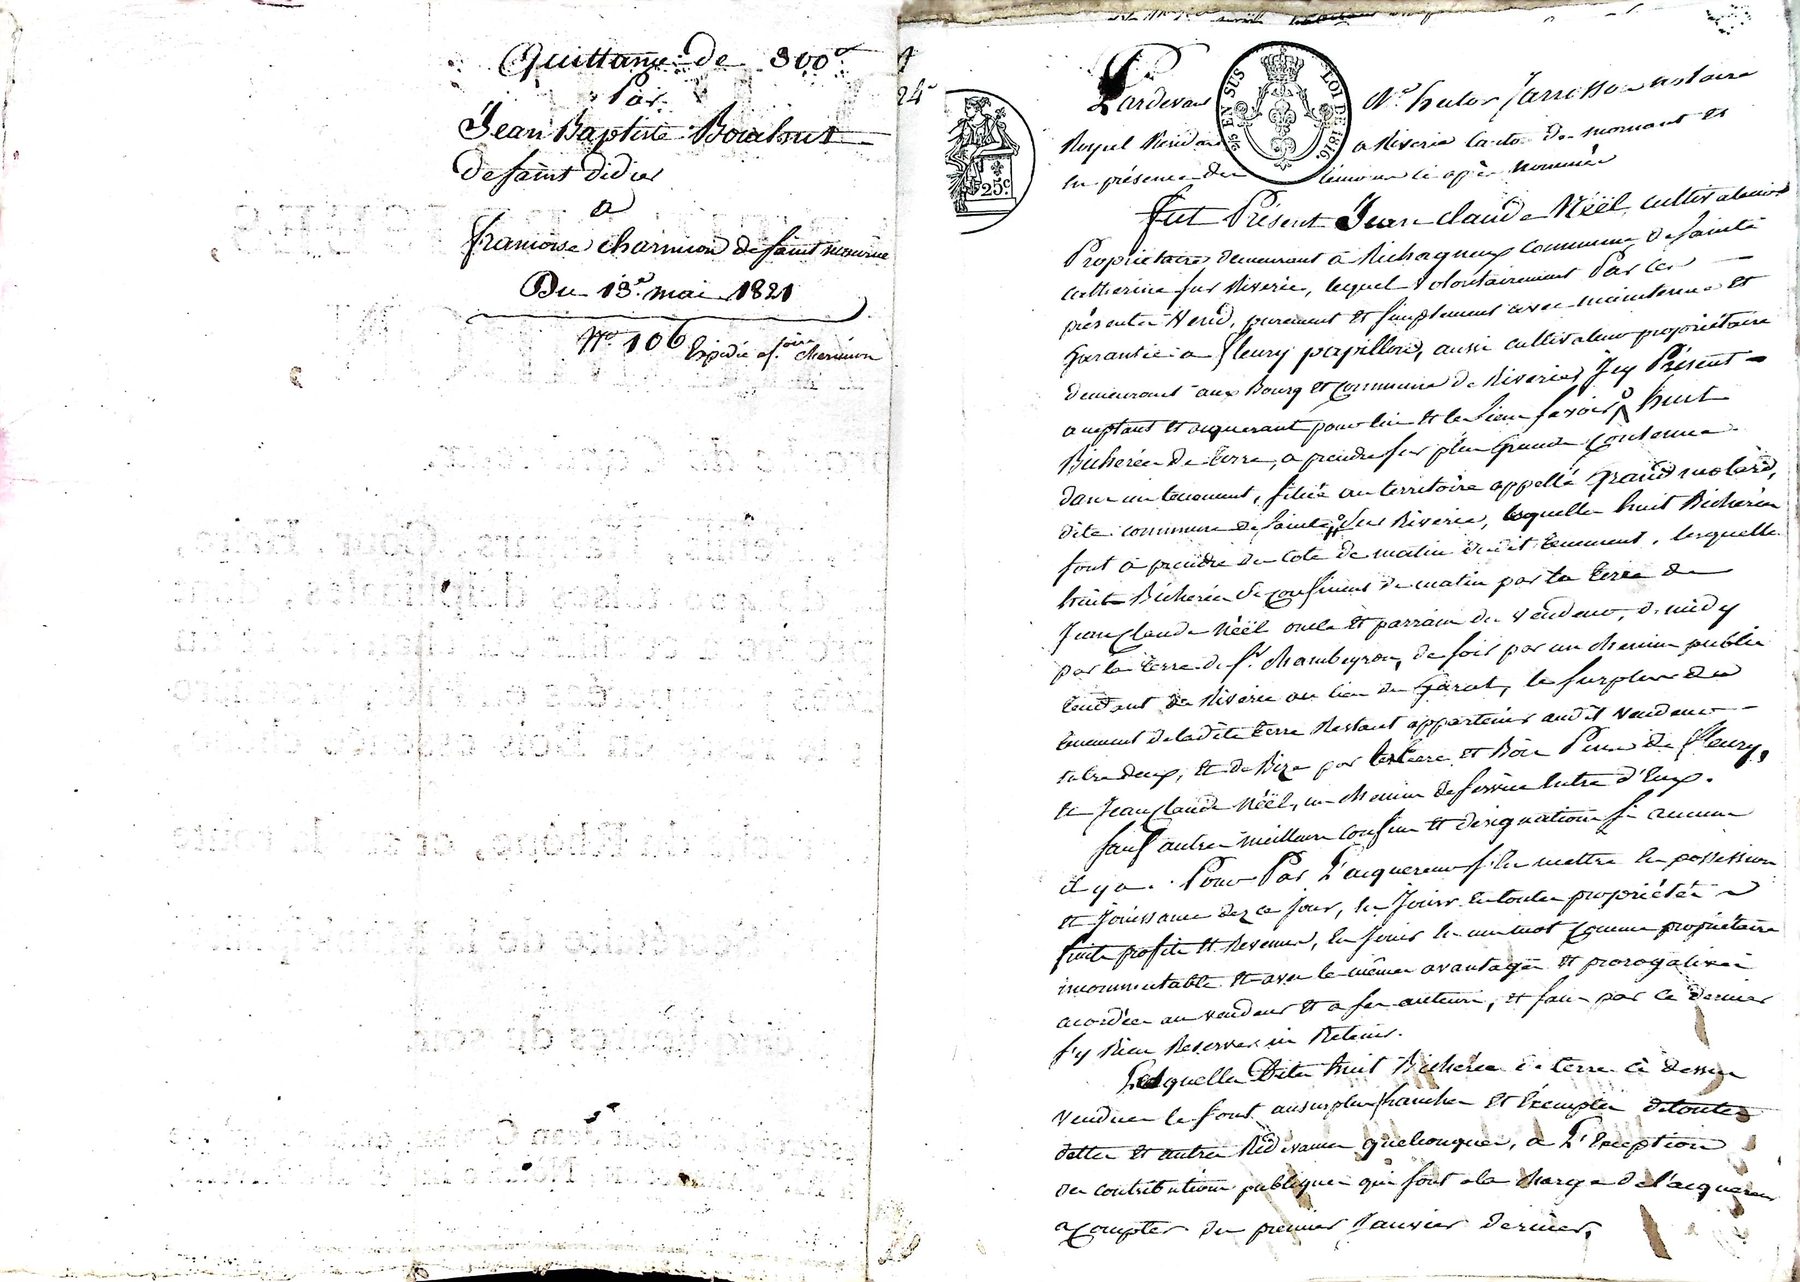 Quittance de 300f
Par
Jean Baptiste Bouchut
de saint didier
a
francoise charmion de saint maurice
Du 13e. mai 1821
No 106 Expédié
24
25c.
5/10 EN SUS LOI DE 1816.
Pardevant Me hector Jarrosson notaire
Royal Résidant a Riverie canton de mornant et
en présence des témoins ci après nommés
fut Présent Jean claude Néël, cultivateur
Propriétaire demeurant à Richagneux commune de sainte
catherine sur Riverie, lequel volontairement Par ces
présentes Vend, purement et simplement avec maintenue et
Garantie a fleury papillon, aussi cultivateur propriétaire
demeurant aux Bourg et commune de Riverie, Icy Présent
aceptant et aquerant pour lui et les siens savoir, huit
Bicherées de terre, a prendre sur plus Grande contenue
dans un tenement, situé au territoire appellé Grand molard,
dite commune de sainte sur Riverie, lesquelles huit Bicherées
sont a prendre du coté de matin dudit tenement, lesquelles
huit Bicherées se confinent de matin par la terre de
Jean Claude Néël oncle et parrain du vendeur, de midy
par la terre de sr. chambeyron, de soir par un chemin public
tendant de Riverie au lieu du Garat, le surplus du
tenement de ladite terre Restant appartenir audit vendeur
entre deux, et de Bize par terre et Bois Pins de fleury,
et Jean Claude Néël, un chemin de service Entre d'Eux.
sauf autres meilleurs confins et designations si aucuns
il y a. Pour Par L'aquereur s'En mettre En possession
et Jouissance dez ce Jour, En Jouir En toutes propriétés
fruits profits et Revenus, En Jouir En un mot comme propriétaire
incommutable et avec les mêmes avantages et prorogatives
acordées au vendeur et a ses auteurs, et sans par ce dernier
s'y Rien Reserver ni Retenir.
Lesquelles Dites huit Bicherées de terre ci dessus
vendues le sont au surplus franches et Exemptes de toutes
dettes et autres Redevances quelconques, a L'Exception
des contributions publiques qui sont a la charge de l'aquereur
a compter du premier Janvier dernier.